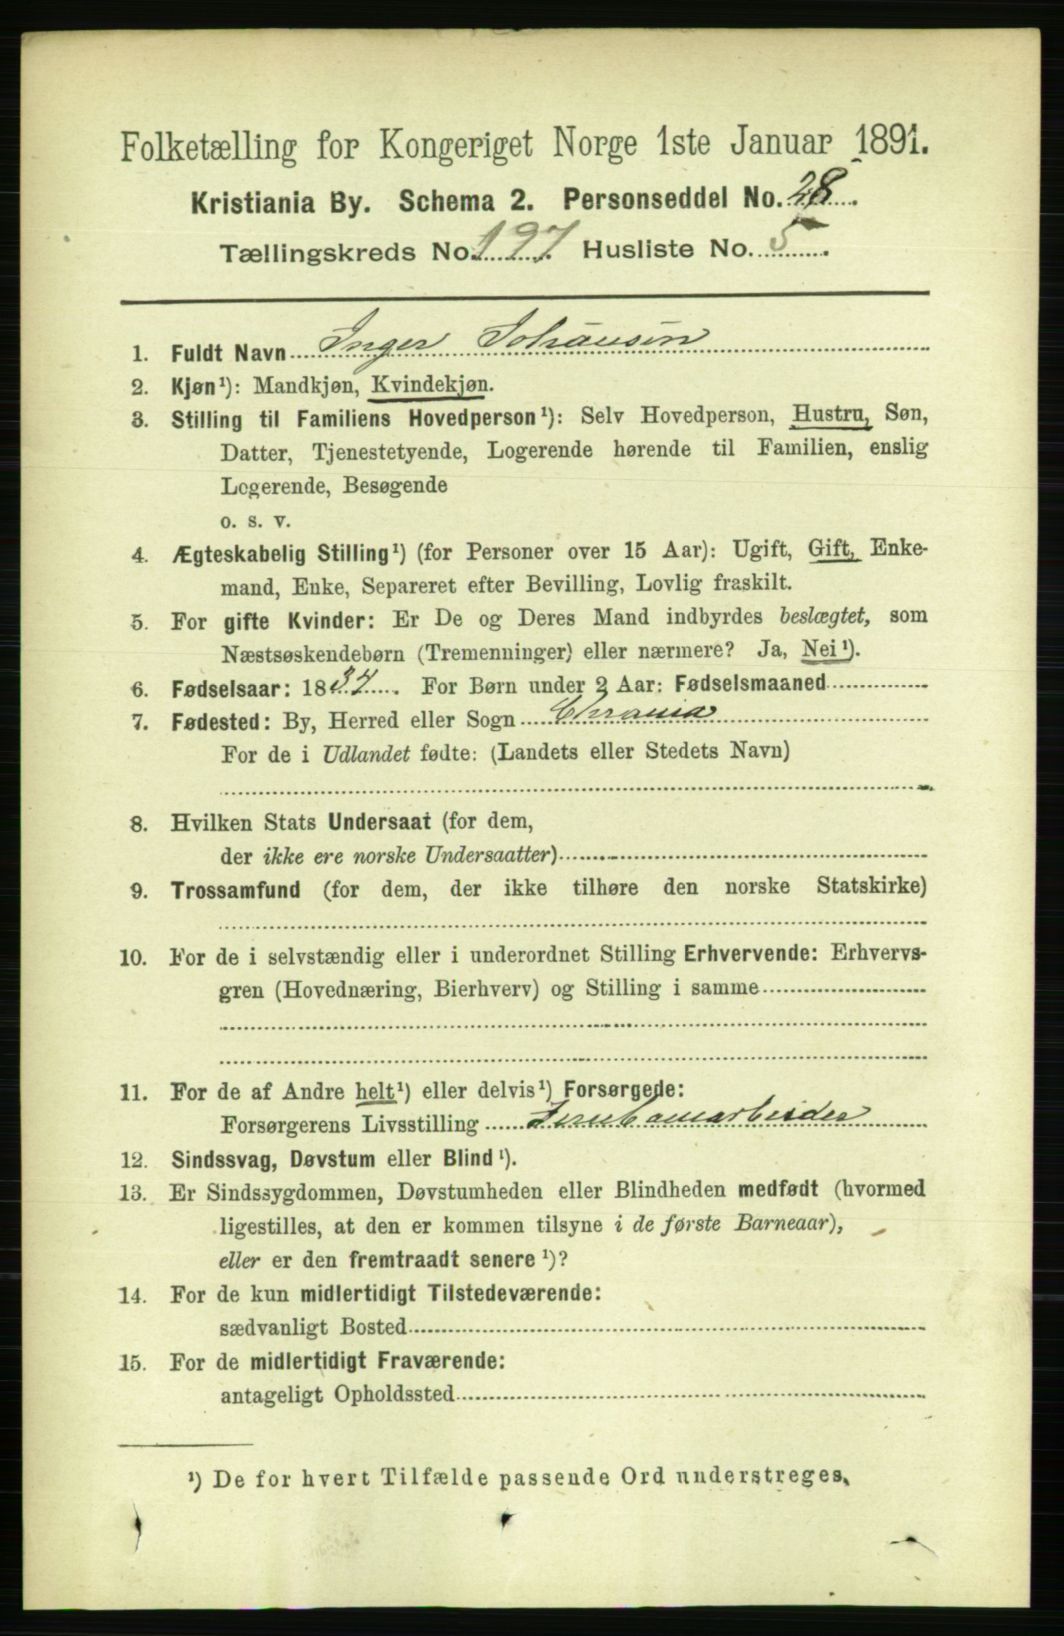 Folketælling for Kongeriget Norge 1ste Januar 1891.
Kristiania By. Schema 2. Personseddel No. 28.
Tællingskreds No. 197. Husliste No. 5.
1. Fuldt Navn Inger Johansen
2. Kjøn¹): Mandkjøn, Kvindekjøn.
3. Stilling til Familiens Hovedperson¹): Selv Hovedperson, Hustru, Søn,
Datter, Tjenestetyende, Logerende hørende til Familien, enslig
Logerende, Besøgende
o. s. v.
4. Ægteskabelig Stilling¹) (for Personer over 15 Aar): Ugift, Gift, Enke-
mand, Enke, Separeret efter Bevilling, Lovlig fraskilt.
5. For gifte Kvinder: Er De og Deres Mand indbyrdes beslægtet, som
Næstsøskendebørn (Tremenninger) eller nærmere? Ja, Nei¹).
6. Fødselsaar: 1837. For Børn under 2 Aar: Fødselsmaaned
7. Fødested: By, Herred eller Sogn Chrania
For de i Udlandet fødte: (Landets eller Stedets Navn)
8. Hvilken Stats Undersaat (for dem,
der ikke ere norske Undersaatter)
9. Trossamfund (for dem, der ikke tilhøre den norske Statskirke)
10. For de i selvstændig eller i underordnet Stilling Erhvervende: Erhvervs-
gren (Hovednæring, Bierhverv) og Stilling i samme
11. For de af Andre helt¹) eller delvis¹) Forsørgede:
Forsørgerens Livsstilling Jernbanearbeider
12. Sindssvag, Døvstum eller Blind¹).
13. Er Sindssygdommen, Døvstumheden eller Blindheden medfødt (hvormed
ligestilles, at den er kommen tilsyne i de første Barneaar),
eller er den fremtraadt senere¹)?
14. For de kun midlertidigt Tilstedeværende:
sædvanligt Bosted
15. For de midlertidigt Fraværende:
antageligt Opholdssted
¹) De for hvert Tilfælde passende Ord understreges.